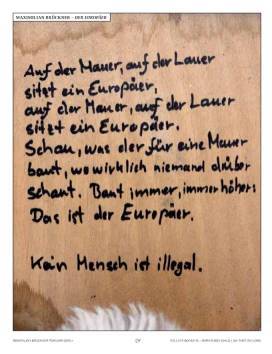 MAXIMILIAN BRÜCKNER – DER EUROPÄER
Auf der Mauer, auf der Lauer
sitzt ein Europäer,
auf der Mauer, auf der Lauer
sitzt ein Europäer.
Schau, was der für eine Mauer
baut, wo wirklich niemand drüber
schaut. Baut immer, immer höher:
Das ist der Europäer.
Kein Mensch ist illegal.